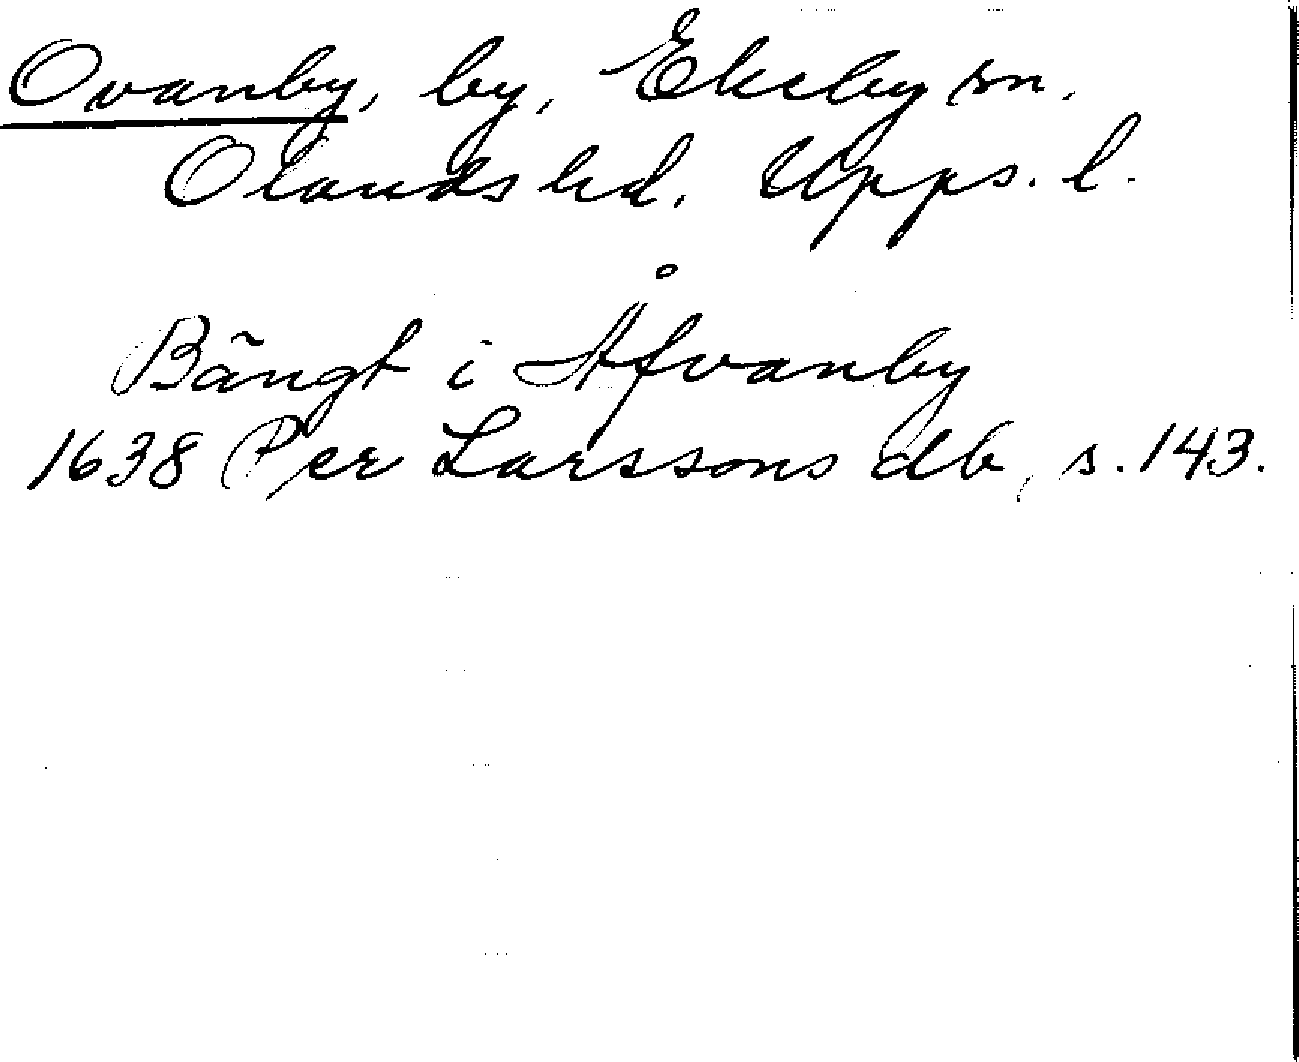 Ovanby, by, Ekeby sn.
Olands hd. Upps. l.
Bängt i Åfvanby
1638 Per Larssons db, s. 143.